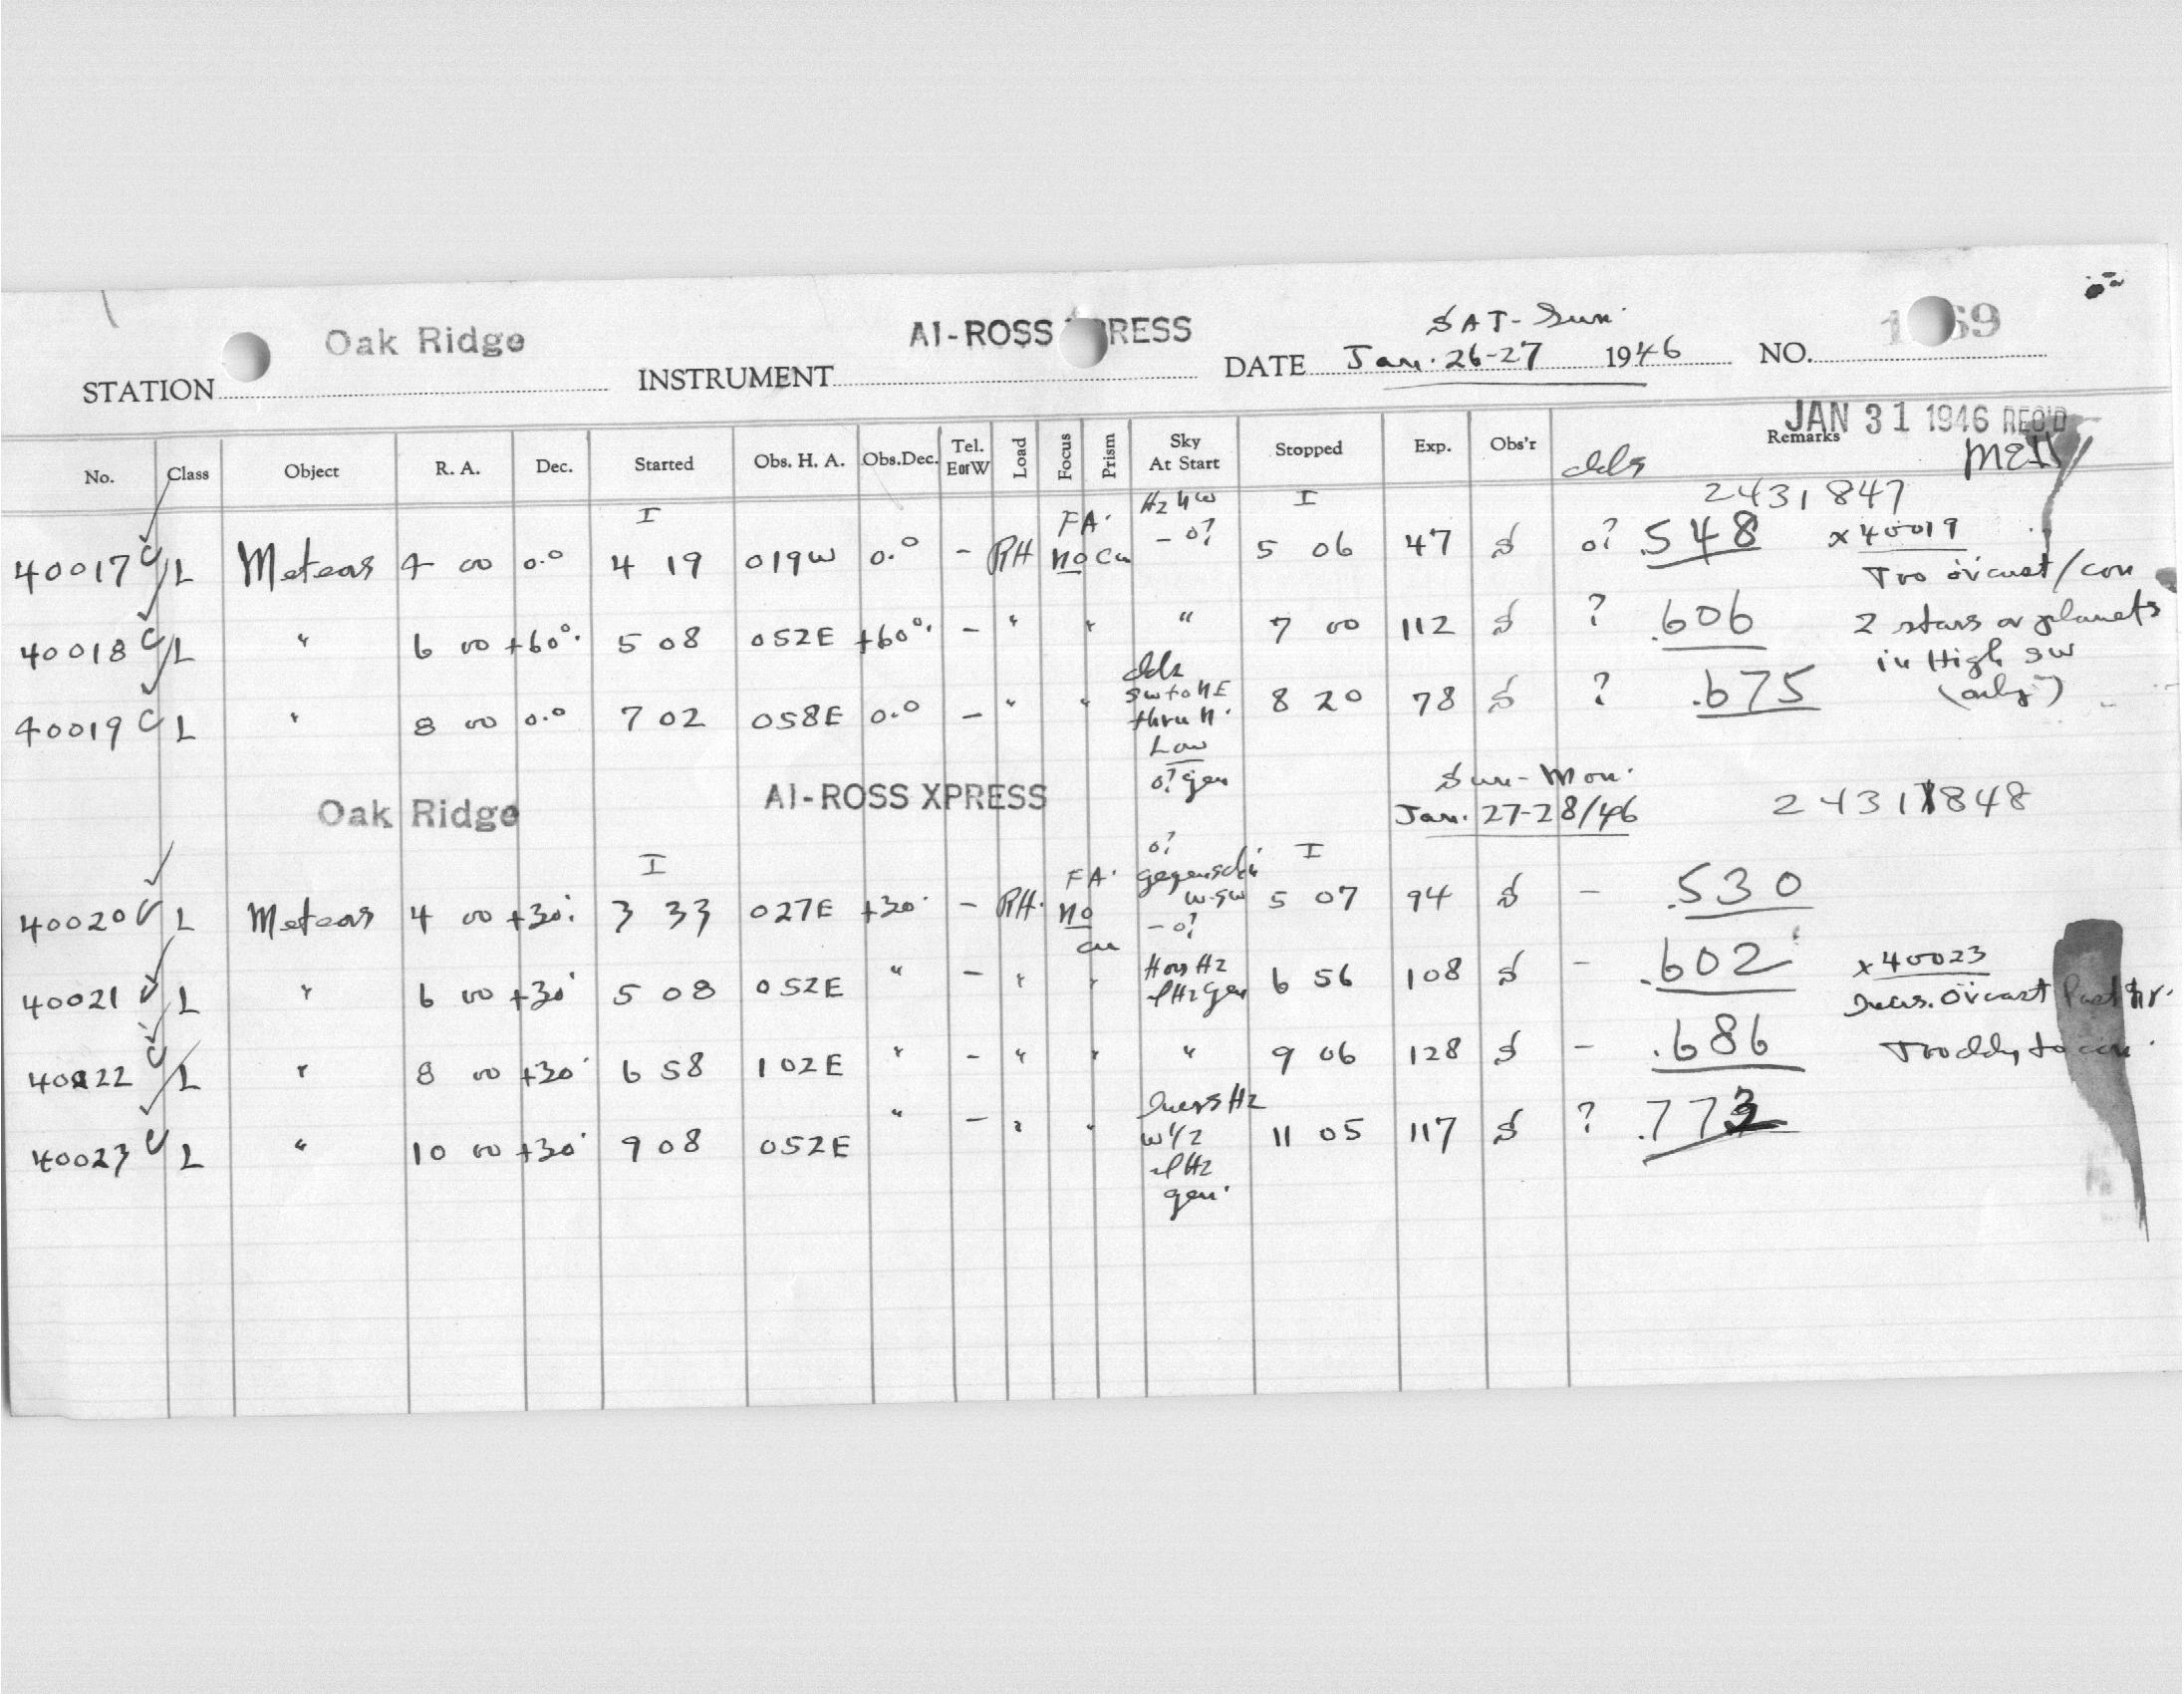 Oak Ridge AI-ROSS RESS SAT-Sun.
STATION INSTRUMENT DATE Jan. 26-27 1946 NO. 1 69
JAN 31 1946 REC'D
No. Class Object R. A. Dec. Started Obs. H. A. Obs.Dec. Tel. E or W Load Focus Prism Sky At Start Stopped Exp. Obs'r Remarks
2431847
40017 L Meteors 4 00 0.0 I 4 19 019W 0.0 - RH FA. no Hz NW - 0? I 5 06 47 S 0? .548 x 40019
40018 L " 6 00 +60° 5 08 052E +60° - " " " 7 00 112 S ? .606 2 stars or planets
in High SW
40019 L " 8 00 0.0 7 02 058E 0.0 - " " SW to NE thru N. Low 0? gen 8 20 78 S ? .675 (only)
Oak Ridge AI-ROSS XPRESS Sun-Mon.
Jan. 27-28/46 2431848
40020 L Meteors 4 00 +30. I 3 33 027E +30. - RH. FA. no 0? W-SW - 0? I 5 07 94 S - .530
40021 L " 6 00 +30 5 08 052E " - " " Hz gen 6 56 108 S - .602 x 40023
40022 L " 8 00 +30 6 58 102E " - " " " 9 06 128 S - .686
40023 L " 10 00 +30 9 08 052E " - " " Hz gen. 11 05 117 S ? .773